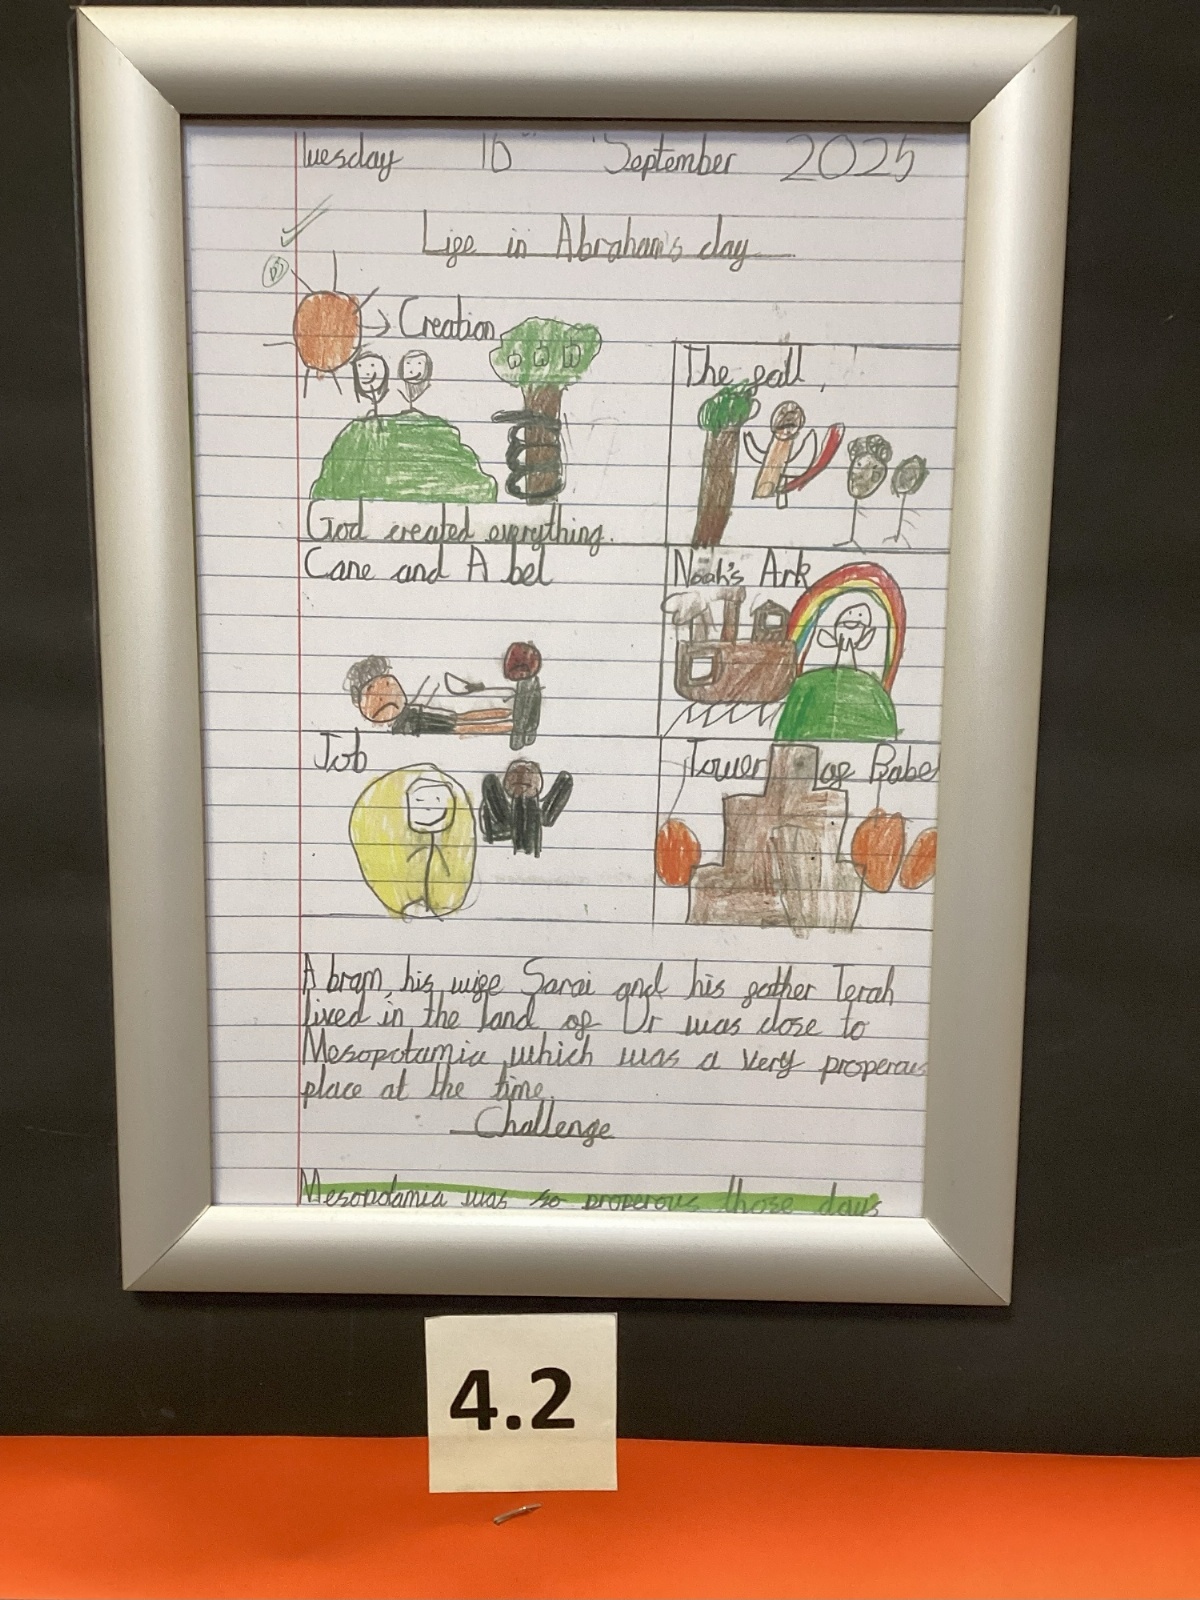 Tuesday 10 September 2025
Life in Abraham's day
Creation
The fall
God created everything.
Cane and Abel
Noah's Ark
Job
Tower of Babel
Abram, his wife Sarai and his father Terah
lived in the land of Ur was close to
Mesopotamia which was a very properous
place at the time.
Challenge
Mesopotamia was so properous those days
4.2